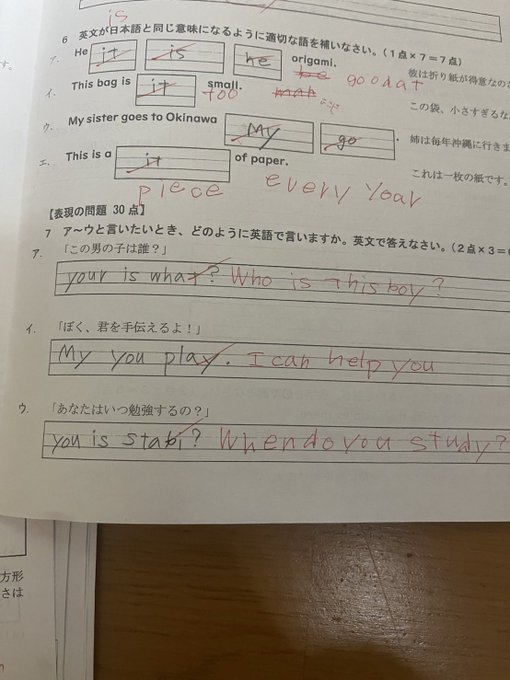 is
6 英文が日本語と同じ意味になるように適切な語を補いなさい。(1点×7=7点)
ア. He it is he origami. 彼は折り紙が得意なのさ
be good at
イ. This bag is it small. この袋、小さすぎるな
too
ウ. My sister goes to Okinawa My go . 姉は毎年沖縄に行きま
エ. This is a it of paper. これは一枚の紙です。
piece every year
【表現の問題 30点】
7 ア~ウと言いたいとき、どのように英語で言いますか。英文で答えなさい。(2点×3=6
ア. 「この男の子は誰?」
your is what? Who is this boy?
イ. 「ぼく、君を手伝えるよ!」
My you play. I can help you
ウ. 「あなたはいつ勉強するの?」
you is stabi? When do you study?
方形
さは